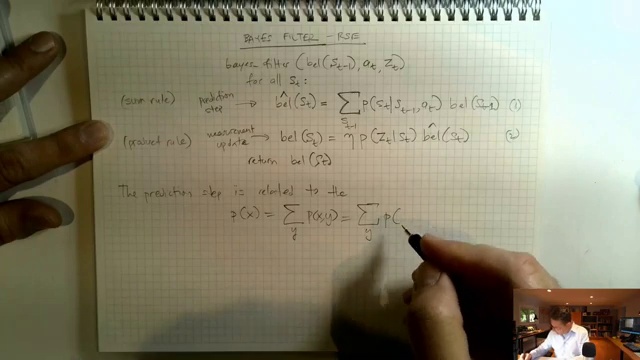 BAYES FILTER - RSE
bayes filter (bel(s_{t-1}), a_t, z_t)
for all s_t:
(sum rule) prediction step → bel^(s_t) = ∑_{s_{t-1}} p(s_t|s_{t-1}, a_t) bel(s_{t-1}) (1)
(product rule) measurement update → bel(s_t) = η p(z_t|s_t) bel^(s_t) (2)
return bel(s_t)
The prediction step is related to the
p(x) = ∑_y p(x,y) = ∑_y p(